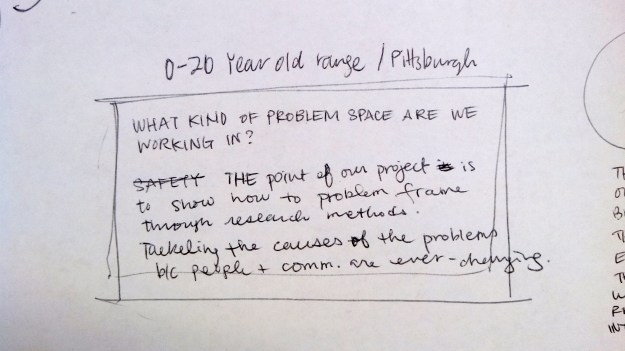 0-20 Year old range / Pittsburgh
WHAT KIND OF PROBLEM SPACE ARE WE
WORKING IN?
SAFETY THE point of our project is is
to show how to problem frame
through research methods.
Tackeling the causes of the problems
b/c people + comm. are ever-changing.
TH
B
T
E
T
W
R
INT